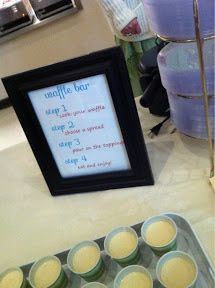 waffle bar
step 1
cook your waffle
step 2
choose a spread
step 3
pour on the toppings
step 4
eat and enjoy!